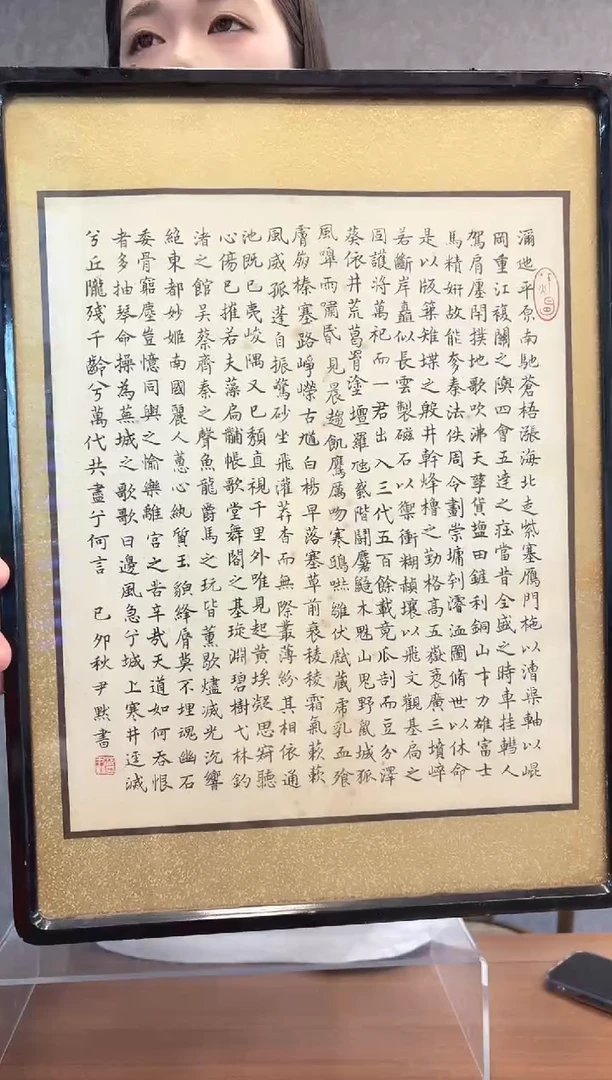 瀰迆平原南馳蒼梧漲海北走紫塞鴈門柂以漕渠軸以崐
岡重江複關之隩四會五達之莊當昔全盛之時車挂轊人
駕肩廛閈撲地歌吹沸天孳貨鹽田鏟利銅山才力雄富士
馬精妍故能奓秦法佚周令劃崇墉刳濬洫圖脩世以休命
是以版築雉堞之殷井幹烽櫓之勤格高五嶽袤廣三墳崪
若斷岸矗似長雲製磁石以禦衝糊赬壤以飛文觀基扃之
固護將萬祀而一君出入三代五百餘載竟瓜剖而豆分澤
葵依井荒葛罥塗壇羅虺蜮階鬭麏鼯木魅山鬼野鼠城狐
風嘷雨嘯昏見晨趨飢鷹厲吻寒鴟嚇雛伏虣藏虎乳血飱
膚崩榛塞路崢嶸古馗白楊早落塞草前衰稜稜霜氣蔌蔌
風威孤蓬自振驚砂坐飛灌莽杳而無際叢薄紛其相依通
池既已夷峻隅又已頹直視千里外唯見起黃埃凝思寂聽
心傷已摧若夫藻扃黼帳歌堂舞閣之基琁淵碧樹弋林釣
渚之館吳蔡齊秦之聲魚龍爵馬之玩皆薰歇燼滅光沉響
絕東都妙姬南國麗人蕙心紈質玉貌絳脣莫不埋魂幽石
委骨窮塵豈憶同輿之愉樂離宮之苦辛哉天道如何吞恨
者多抽琴命操為蕪城之歌歌曰邊風急兮城上寒井逕滅
兮丘隴殘千齡兮萬代共盡兮何言 己卯秋尹默書